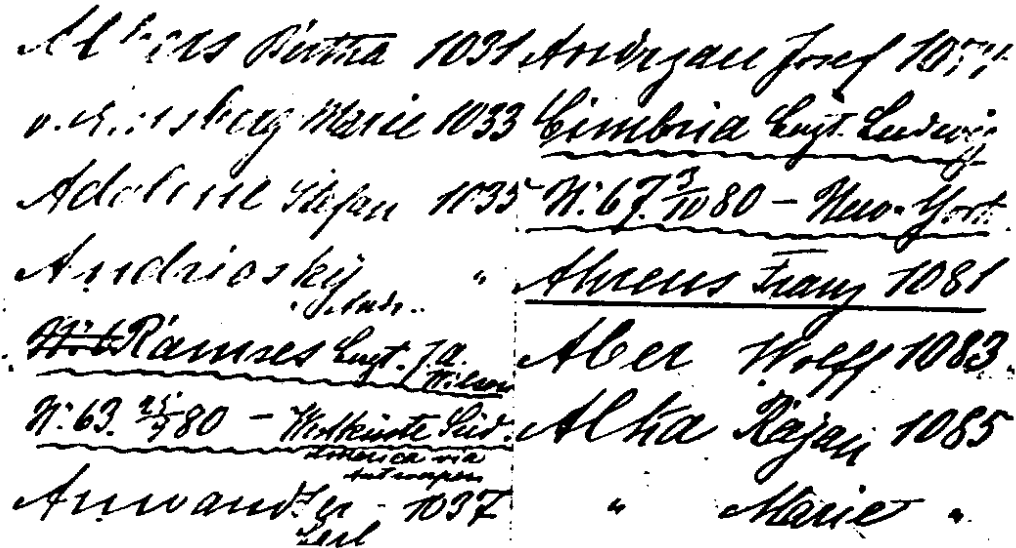 Bertha 1031
Marie 1033
Stefan 1035
Andriosky "
Andr.
Ramses Capt. J. A.
Wilson
N: 63. 25/9 80 – Westküste Süd-
America via
Antwerpen
Anwandter - 1037
Carl
Josef
Cimbria Capt. Ludwig
N: 67. 3/10 80 – New-York
Ahrens Franz 1081
Aber Wolff 1083
Alka Kajan 1085
" Marie "